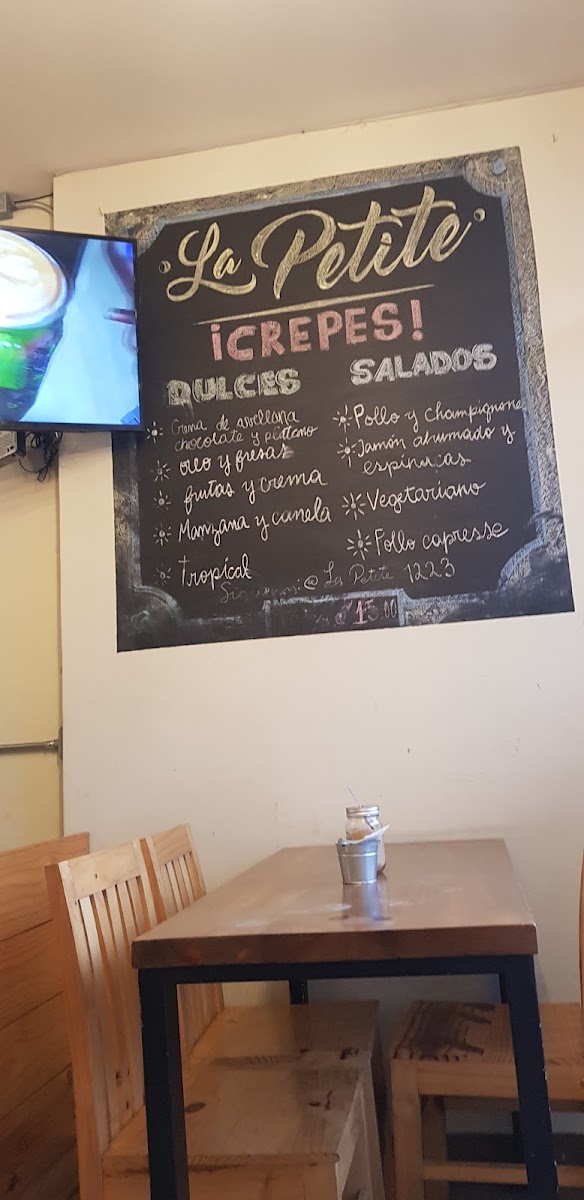 La Petite
¡CREPES!
DULCES
Crema de avellana
chocolate y platano
oreo y fresas
frutas y crema
Manzana y canela
Tropical
SALADOS
Pollo y champignone
Jamón ahumado y
espinacas
Vegetariano
Pollo capresse
@ La Petite 1223
15.00